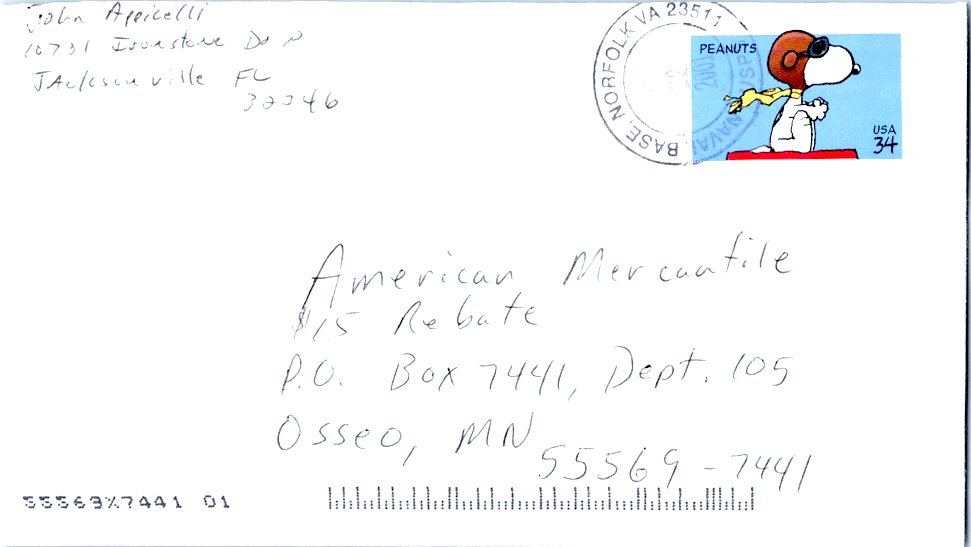 John Appicelli
10731 Ironstone Dr N
JAcksonville FL
32246
BASE, NORFOLK VA 23511
NAVAL
2001
PEANUTS
USA
34
American Mercantile
$15 Rebate
P.O. Box 7441, Dept. 105
Osseo, MN
55569-7441
55569%7441 01